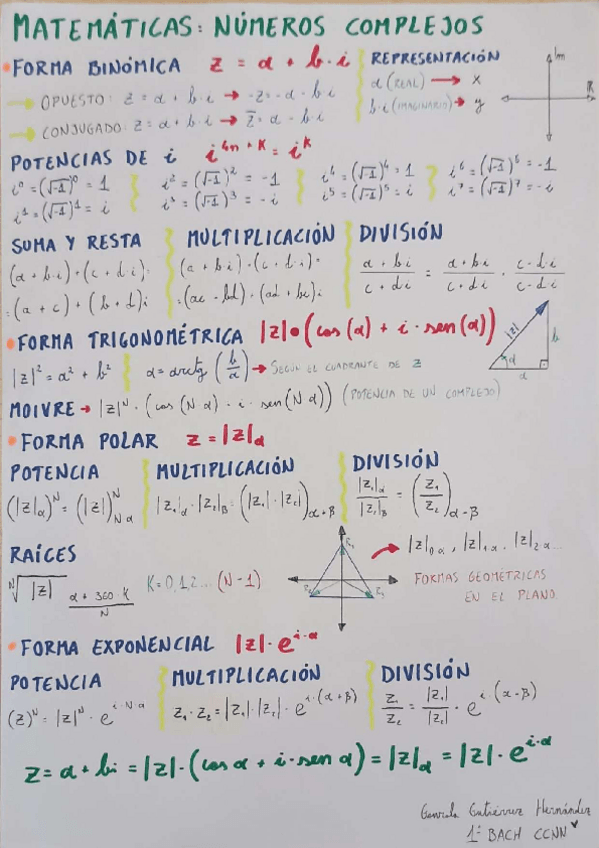 MATEMÁTICAS: NÚMEROS COMPLEJOS
• FORMA BINÓMICA z = a + b·i
REPRESENTACIÓN
a (REAL) → x
b·i (IMAGINARIO) → y
Im
R
→ OPUESTO: z = a + b·i → -z = -a - b·i
→ CONJUGADO: z = a + b·i → z̅ = a - b·i
POTENCIAS DE i i^(4n + k) = i^k
i⁰ = (√-1)⁰ = 1
i¹ = (√-1)¹ = i
i² = (√-1)² = -1
i³ = (√-1)³ = -i
i⁴ = (√-1)⁴ = 1
i⁵ = (√-1)⁵ = i
i⁶ = (√-1)⁶ = -1
i⁷ = (√-1)⁷ = -i
SUMA Y RESTA
(a + b·i) + (c + d·i) =
= (a + c) + (b + d)i
MULTIPLICACIÓN
(a + b·i) · (c + d·i) =
= (ac - bd) + (ad + bc)i
DIVISIÓN
(a + bi)/(c + di) = (a + bi)/(c + di) · (c - di)/(c - di)
• FORMA TRIGONOMÉTRICA |z|·(cos(α) + i·sen(α))
|z|² = a² + b²
α = arctg (b/a) → SEGÚN EL CUADRANTE DE z
|z|
b
α
a
MOIVRE → |z|^N · (cos(N α) + i · sen(N α)) (POTENCIA DE UN COMPLEJO)
• FORMA POLAR z = |z|_α
POTENCIA
(|z|_α)^N = (|z|)^N_(N·α)
MULTIPLICACIÓN
|z₁|_α · |z₂|_β = (|z₁| · |z₂|)_(α+β)
DIVISIÓN
|z₁|_α / |z₂|_β = (z₁/z₂)_(α-β)
RAÍCES
ᴺ√|z| _((α + 360 k)/N)
K = 0,1,2... (N - 1)
R₁
R₂
R₃
|z|_(0α), |z|_(1α), |z|_(2α)...
FORMAS GEOMÉTRICAS
EN EL PLANO.
• FORMA EXPONENCIAL |z|·e^(i·α)
POTENCIA
(z)^N = |z|^N · e^(i·N·α)
MULTIPLICACIÓN
z₁ · z₂ = |z₁| · |z₂| · e^(i·(α + β))
DIVISIÓN
z₁/z₂ = |z₁|/|z₂| · e^(i·(α - β))
z = a + bi = |z|·(cos α + i·sen α) = |z|_α = |z|·e^(i·α)
Gutiérrez Hernández
1º BACH CCNN